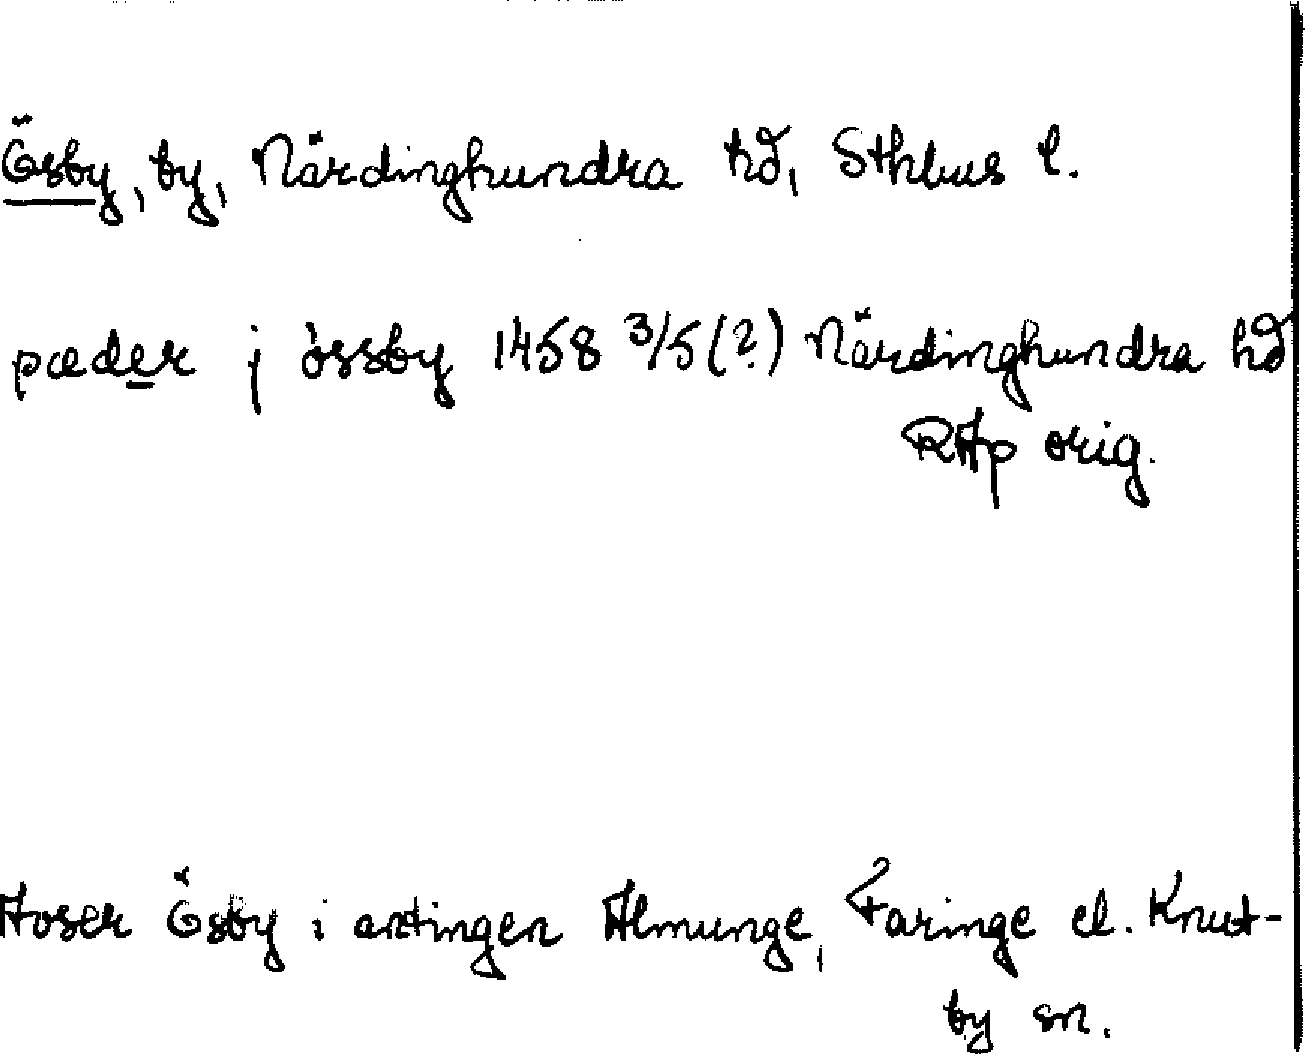 Ösby, by, Närdinghundra hd, Sthlms l.
pæder j össby 1458 3/5 (?) Närdinghundra hd
RAp orig.
Avser Ösby i antingen Almunge, Faringe el. Knut-
by sn.